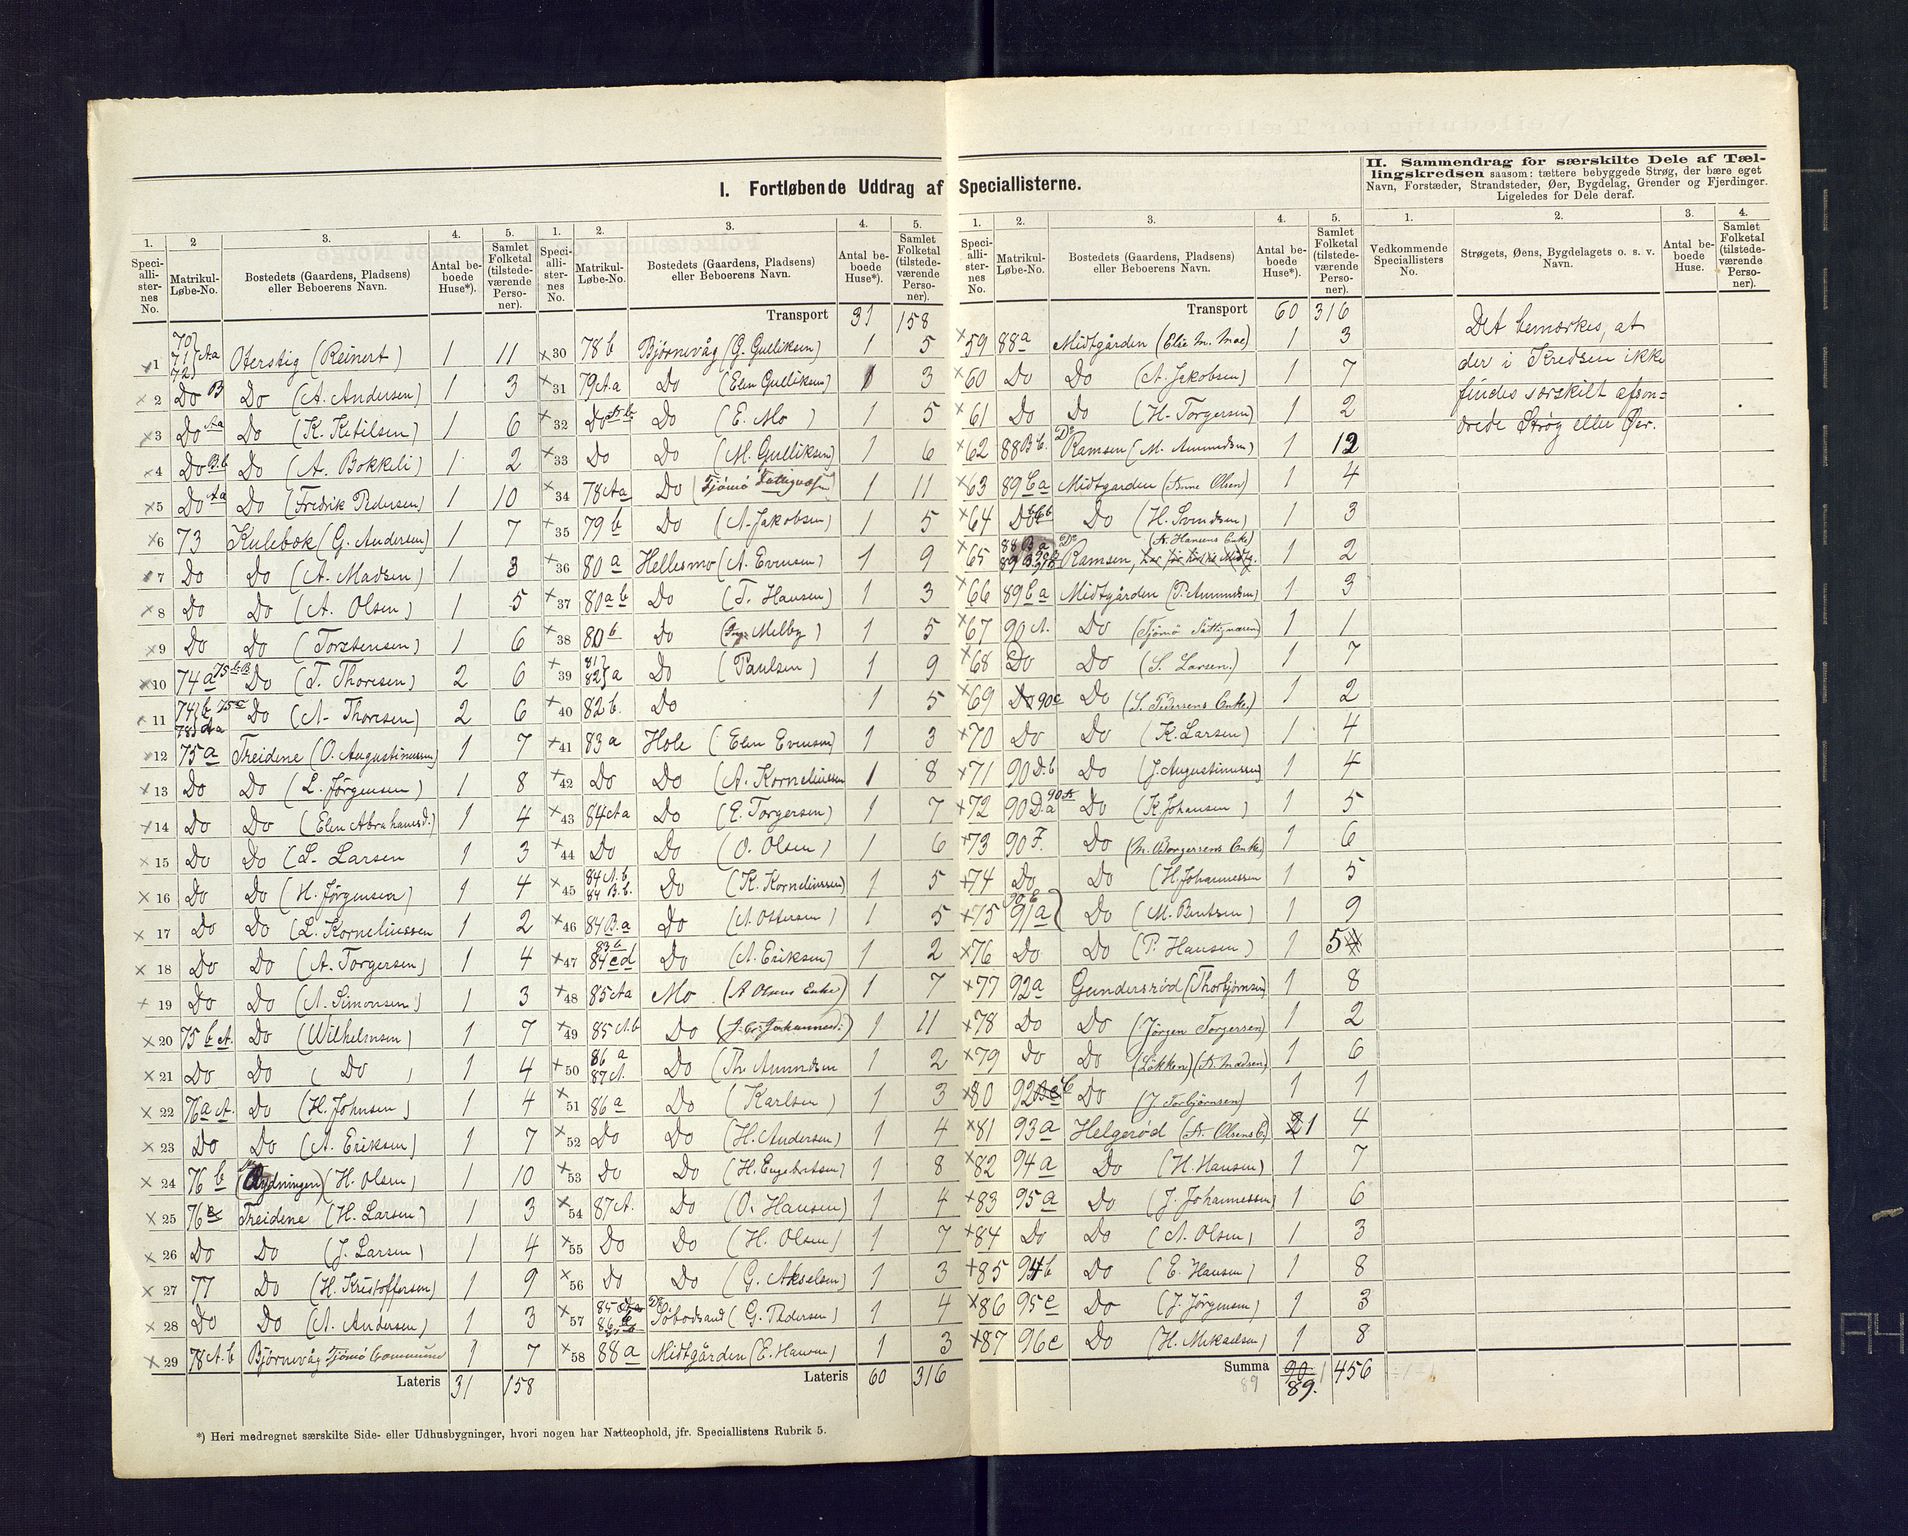 I. Fortløbende Uddrag af Speciallisterne.
1. 2 3. 4. 5.
Speciallisternes No. Matrikul-Løbe-No. Bostedets (Gaardens, Pladsens) eller Beboerens Navn. Antal beboede Huse*). Samlet Folketal (tilstedeværende Personer).
1 70 71 72 Aa Oterstig (Reinert) 1 11
2 Do B Do (A. Andersen) 1 3
3 Do Aa Do (K. Ketilsen) 1 6
4 Do B.b Do (A. Bokkeli) 1 2
5 Do Aa Do (Fredrik Pedersen) 1 10
6 73 Kulebok (G. Andersen) 1 7
7 Do Do (A. Madsen) 1 3
8 Do Do (A. Olsen) 1 5
9 Do Do (Torstensen) 1 6
10 74a 75bB Do (T. Thoresen) 2 6
11 74b 75c Do (A. Thoresen) 2 6
12 75a Treidene (O. Augustinussen) 1 7
13 Do Do (L. Jørgensen) 1 8
14 Do Do (Elen Abrahamsd.) 1 4
15 Do Do (L. Larsen 1 3
16 Do Do (H. Jørgensen) 1 4
17 Do Do (L. Korneliussen 1 2
18 Do Do (A. Torgersen) 1 4
19 Do Do (A. Simonsen) 1 3
20 75 b A. Do (Wilhelmsen) 1 7
21 Do Do ( Do ) 1 4
22 76a A. Do (H. Johnsen) 1 4
23 Do Do (A. Eriksen) 1 7
24 76 b (Rydningen) (H. Olsen) 1 10
25 76 Treidene (H. Larsen) 1 3
26 Do Do (J. Larsen) 1 4
27 77 Do (H. Kristoffersen) 1 9
28 Do Do (A. Andersen) 1 3
29 78 A.b Bjørnevåg Tjømø Commune 1 7
Lateris 31 158
*) Heri medregnet særskilte Side- eller Udhusbygninger, hvori nogen har Natteophold, jfr. Speciallistens Rubrik 5.
1. 2. 3. 4. 5.
Speciallisternes No. Matrikul-Løbe-No. Bostedets (Gaardens, Pladsens) eller Beboerens Navn. Antal beboede Huse*). Samlet Folketal (tilstedeværende Personer).
Transport 31 158
30 78 b Bjørnevåg (G. Gulliksen) 1 5
31 79 Aa Do (Elen Gulliksen) 1 3
32 Do A b Do (E. Mo ) 1 5
33 Do Do (M. Gulliksen) 1 6
34 78 Aa Do (Tjømø Fattigvæsen) 1 11
35 79 b Do (A. Jakobsen) 1 5
36 80 a Hellesmo (A. Evensen) 1 9
37 80 a b Do (T. Hansen) 1 3
38 80 b Do (Melby) 1 5
39 81 82 a Do (Paulsen) 1 9
40 82 b. Do 1 5
41 83 a Hole (Elen Evensen) 1 3
42 Do Do (A. Korneliussen 1 8
43 84 Aa Do (E. Torgersen) 1 7
44 Do Do (O. Olsen) 1 6
45 84 A.b 84 B.b. Do (K. Korneliussen) 1 5
46 84 B.a Do (A. Ottersen) 1 5
47 83 b 84 c d Do (A. Eriksen) 1 2
48 85 Aa Mo (A Olsens Enke) 1 7
49 85 A.b Do (Johannesd.) 1 11
50 86 a 87 A. Do (Th Amundsen 1 2
51 86 a Do (Karlsen) 1 3
52 Do Do (H. Andersen) 1 4
53 Do Do (H. Engebretsen) 1 8
54 87 A. Do (O. Hansen) 1 4
55 Do Do (H. Olsen) 1 7
56 Do Do (G. Akselsen) 1 3
57 85 86 Do Sobodsand (G. Pedersen) 1 4
58 88 a Midtgården (E. Hansen) 1 3
Lateris 60 316
1. 2. 3. 4. 5.
Speciallisternes No. Matrikul-Løbe-No. Bostedets (Gaardens, Pladsens) eller Beboerens Navn. Antal beboede Huse*). Samlet Folketal (tilstedeværende Personer).
Transport 60 316
59 88 a Midtgården (Elie M. Moe) 1 3
60 Do Do (A. Jakobsen) 1 7
61 Do Do (H. Torgersen) 1 2
62 88 B b. Do Ramsen (M. Amundsen) 1 12
63 89 b a Midtgården (Anne Olsen) 1 4
64 Do Do (H. Svendsen) 1 3
65 88 B a 89 B Do Ramsen, (A. Hansens Enke) 1 2
66 89 b a Midtgården (P. Amundsen) 1 3
67 90 A. Do (Tjømø Fattigvæsen) 1 1
68 Do Do (S. Larsen.) 1 7
69 Do 90c Do (S. Pedersens Enke) 1 2
70 Do Do (K. Larsen) 1 4
71 90 D.b Do (J. Augustinussen) 1 4
72 90 D.a 90 A Do (K. Johansen ) 1 5
73 90 F. Do (M. Borgersens Enke) 1 6
74 Do Do (H. Johannessen 1 5
75 90 E 91 a Do (M. Bentsen) 1 9
76 Do Do (P. Hansen) 1 5
77 92 a Gundersrød (Thorbjørnsen) 1 8
78 Do Do (Jørgen Torgersen) 1 2
79 Do Do (Løkken) (A. Madsen) 1 6
80 92 Do (J Torbjørnsen) 1 1
81 93 a Helgerød (A. Olsens E.) 1 4
82 94 a Do (H. Hansen) 1 7
83 95 a Do (J. Johannessen) 1 6
84 Do Do (A. Olsen) 1 3
85 94 b Do (E. Hansen) 1 8
86 95 c Do (J. Jørgensen) 1 3
87 96 c Do (H. Mikaelsen) 1 8
Summa 90 89. 456
89
II. Sammendrag for særskilte Dele af Tællingskredsen saasom: tættere bebyggede Strøg, der bære eget Navn, Forstæder, Strandsteder, Øer, Bygdelag, Grender og Fjerdinger. Ligeledes for Dele deraf.
1. 2. 3. 4.
Vedkommende Speciallisters No. Strøgets, Øens, Bygdelagets o. s. v. Navn. Antal beboede Huse. Samlet Folketal (tilstedeværende Personer).
Det bemærkes, at
der i Kredsen ikke
findes særskilt afson=
drede Strøg eller Øer.